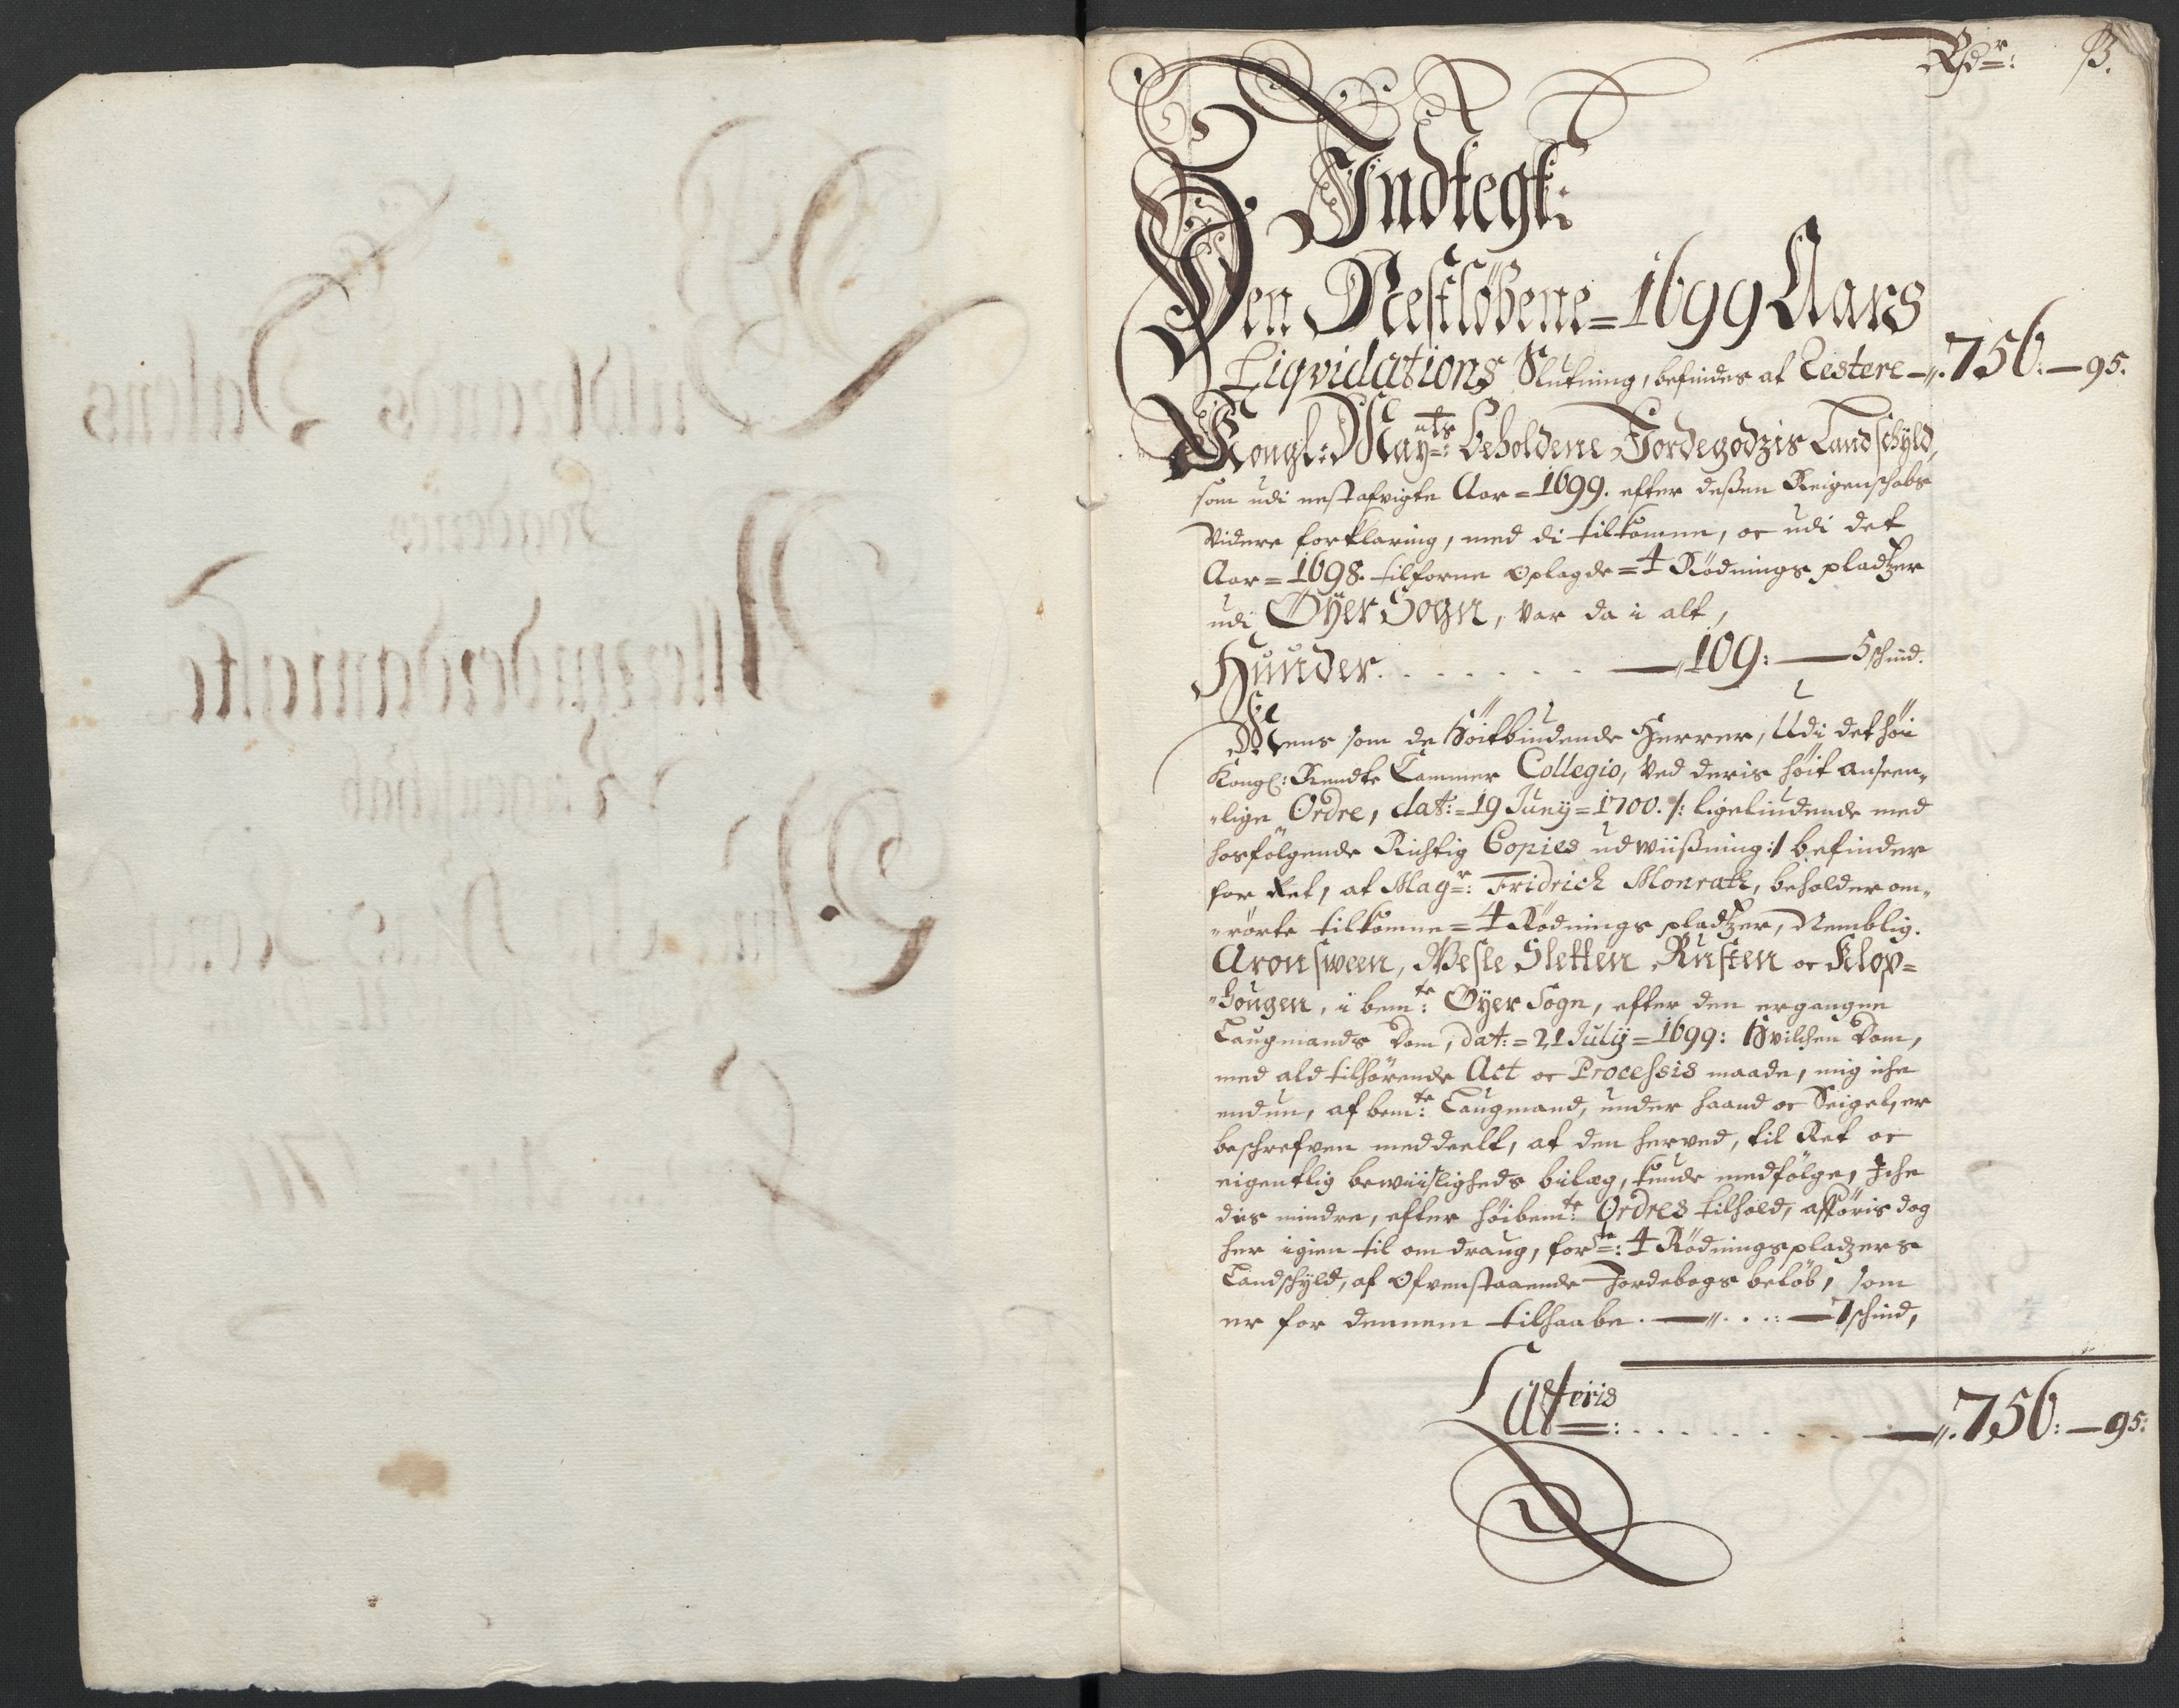 Rdr: ß.
Indtegt:
Den Nestløbene = 1699 Aars
Liqvidations Slutning, befindes at Restere —„. 756: — 95:
Kongl: Mayts: beholdene Jordegodzis Landschÿld,
som udi nestafvigte Aar = 1699. efter deßen Reigenschabs
videre forklaring, med di tilkomne, oc udi det
Aar = 1698. tilforne oplagde = 4 Rödnings pladtzer
udi Øÿer Sogn, var da i alt,
Huuder . . . . . . . —„109: — 5 schind.
Mens som de Høitbiudende Herrer, Udi det høie
Kongl: Rendte Cammer Collegio, ved deris høit anseen„
„lige Ordre, dat: = 19 Junÿ = 1700. /: ligeliudende med
hosfølgende Richtig Copies udwiißning :/ befinder
for Ret, at Magr: Fridrich Monrath, beholder om„
„rörte tilkomne = 4 Rödnings pladtzer, Nemblig.
Aronsween, Wesle Sletten Rusten oc Klop=
„hougen, i bemte: Øÿer Sogn, efter den ergangne
Laugmands Dom, dat: = 21 Julÿ = 1699: Hvilchen Dom,
med ald tilhørende Act oc Processis maade, mig iche
endnu, af bemte: Laugmand, under haand oc Seigel, er
beschrefven meddeelt, at den herved, til Ret oc
eigentlig bewiisligheds bilag, kunde medfölge, Iche
dis mindre, efter høibemte: Ordres tilhold, afföris dog
her igien til omdraug, forste: 4 Rödningspladzers
Landschÿld, af ofvenstaaende Jordebogs beløb, som
er for dennem tilhaabe. —„. . .: — 7 schind,
Lateris: . . . . . . . . —„. 756: — 95: